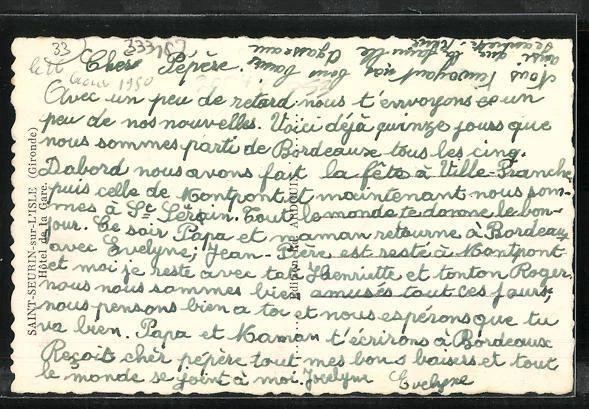 33
33350
Chère Pépère.
Août 1950
Avec un peu de retard nous t'ennvoyons un
peu de nos nouvelles. Voici déjà quinze jours que
nous sommes parti de Bordeaux tous les cinq.
Dabord nous avons fait la fête à Ville-Franche
puis celle de Montpont et maintenant nous som-
mes à St Seurin. Tout le monde te donne le bon-
jour. Ce soir Papa et maman retourne à Bordeaux
avec Evelyne, Jean-Pière est resté à Montpont
et moi je reste avec tata Henriette et tonton Roger.
nous nous sommes bien amusés tout ces jours,
nous pensons bien a toi et nous espérons que tu
va bien. Papa et Maman t'écrirons à Bordeaux
Reçois cher pépère tout mes bons baisers et tout
le monde se joint à moi. Jocelyne
Evelyne
Nous t'envoyant nos bons baisers
ainsi que la famille Agasseau
SAINT-SEURIN-sur-L'ISLE (Gironde)
Hôtel de la Gare.